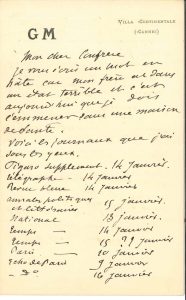 GM
VILLA CONTINENTALE
(CANNES)
Mon cher Confrère
je vous écris un mot en
hâte car mon frère est dans
un état terrible et c'est
aujourd'hui que je dois
l'emmener dans une maison
de santé.
Voici les journaux que j'ai
sous les yeux.
Figaro supplément. 14 Janvier.
Télégraphe - 14 Janvier
Revue bleue 14 Janvier
Annales politiques
et littéraires 15 Janvier.
National 13 Janvier.
Temps - 14 Janvier
Temps - 15 ? Janvier
Paris - 10 Janvier
Echo de Paris 9 Janvier
- do 16 Janvier